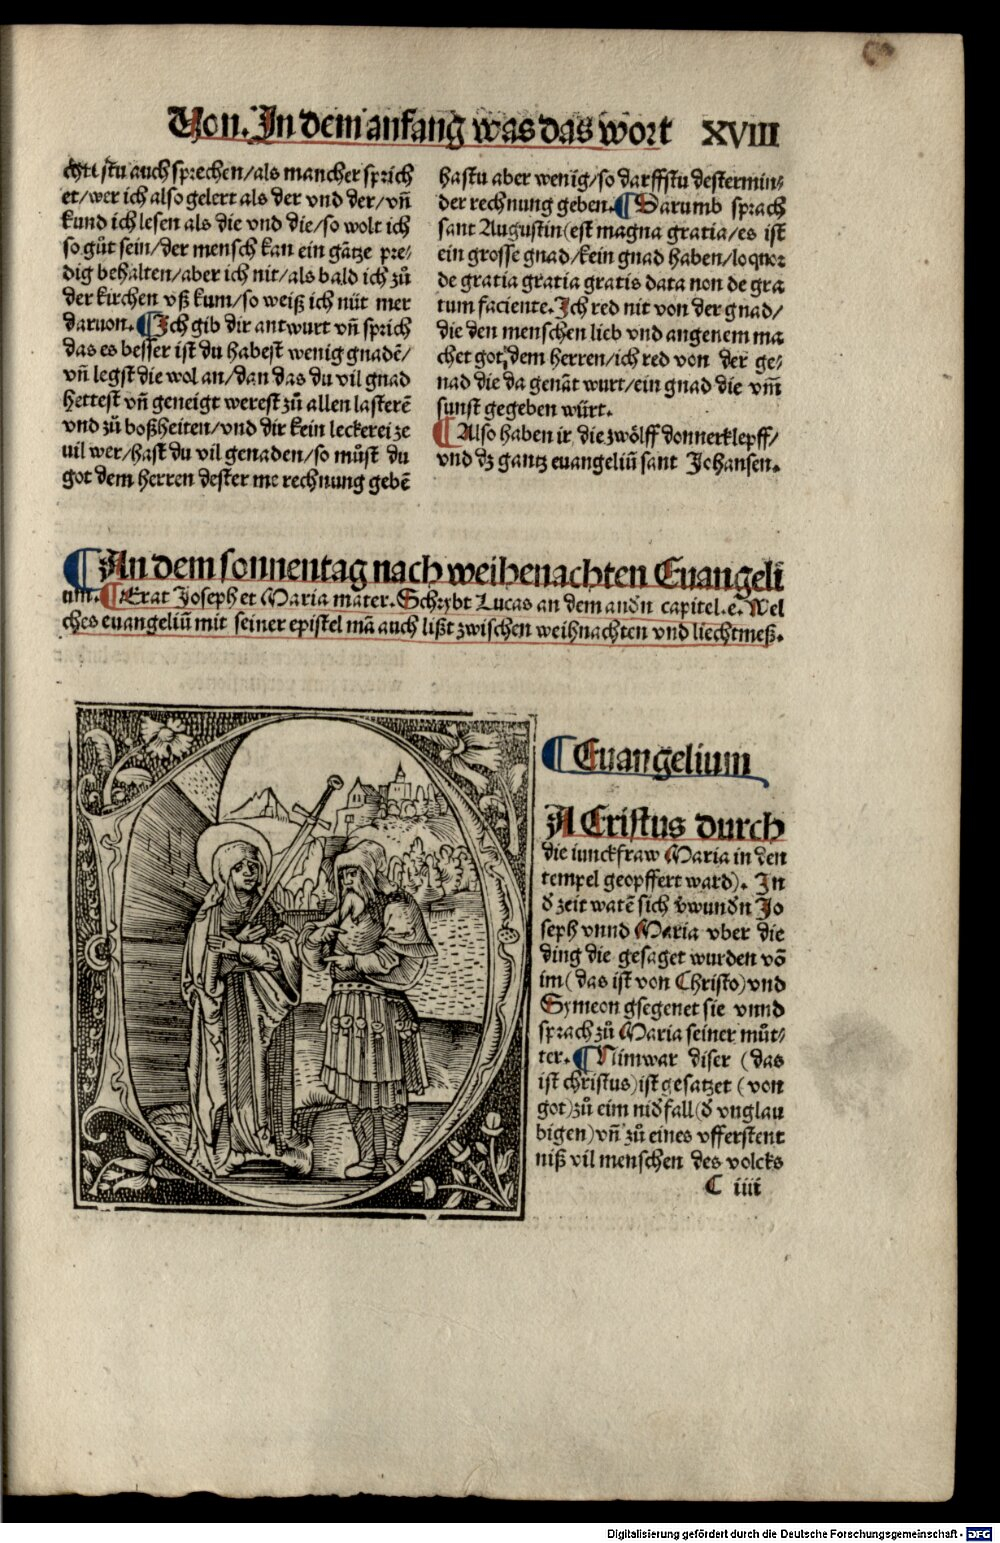 Von. In dem anfang was das wort XVIII
stu auch sprechen/als mancher sprich
et/wer ich also gelert als der vnd der/vñ
kund ich lesen als die vnd die/so wolt ich
so gůt sein/der mensch kan ein gãtze pre/
dig behalten/aber ich nit/als bald ich zů
der kirchen vß kum/so weiß ich nüt mer
daruon. ¶Ich gib dir antwurt vñ sprich
das es besser ist du habest wenig gnadẽ/
vñ legst die wol an/dan das du vil gnad
hettest vñ geneigt werest zů allen lasterẽ
vnd zů boßheiten/vnd dir kein leckerei ze
uil wer/hast du vil genaden/so můst du
got dem herren dester me rechnung gebẽ
hastu aber wenig/so darffstu destermin/
der rechnung geben. ¶Darumb sprach
sant Augustin(est magna gratia/es ist
ein grosse gnad/kein gnad haben/loquor
de gratia gratia gratis data non de gra
tum faciente. Ich red nit von der gnad/
die den menschen lieb vnd angenem ma
chet got dem herren/ich red von der ge/
nad die da genãt wurt/ein gnad die vm̃
sunst gegeben würt.
¶Also haben ir die zwölff donnerklepff/
vnd dz gantz euangeliũ sant Johansen.
¶An dem sonnentag nach weihenachten Euangeli
um. ¶Erat Joseph et Maria mater. Schrybt Lucas an dem andn̄ capitel. e. Wel
ches euangeliũ mit seiner epistel mã auch lißt zwischen weihnachten vnd liechtmeß.
¶Euangelium
A Cristus durch
die iunckfraw Maria in den
tempel geopffert ward). In
d̄ zeit watẽ sich v̄wundn̄ Jo
seph vnnd Maria vber die
ding die gesaget wurden võ
im(das ist von Christo)vnd
Symeon gsegenet sie vnnd
sprach zů Maria seiner můt/
ter. ¶Nimwar diser (das
ist christus)ist gesatzet (von
got)zů eim nid̄fall(d̄ vnglau
bigen)vñ zů eines vfferstent
niß vil menschen des volcks
C iiii
Digitalisierung gefördert durch die Deutsche Forschungsgemeinschaft - DFG